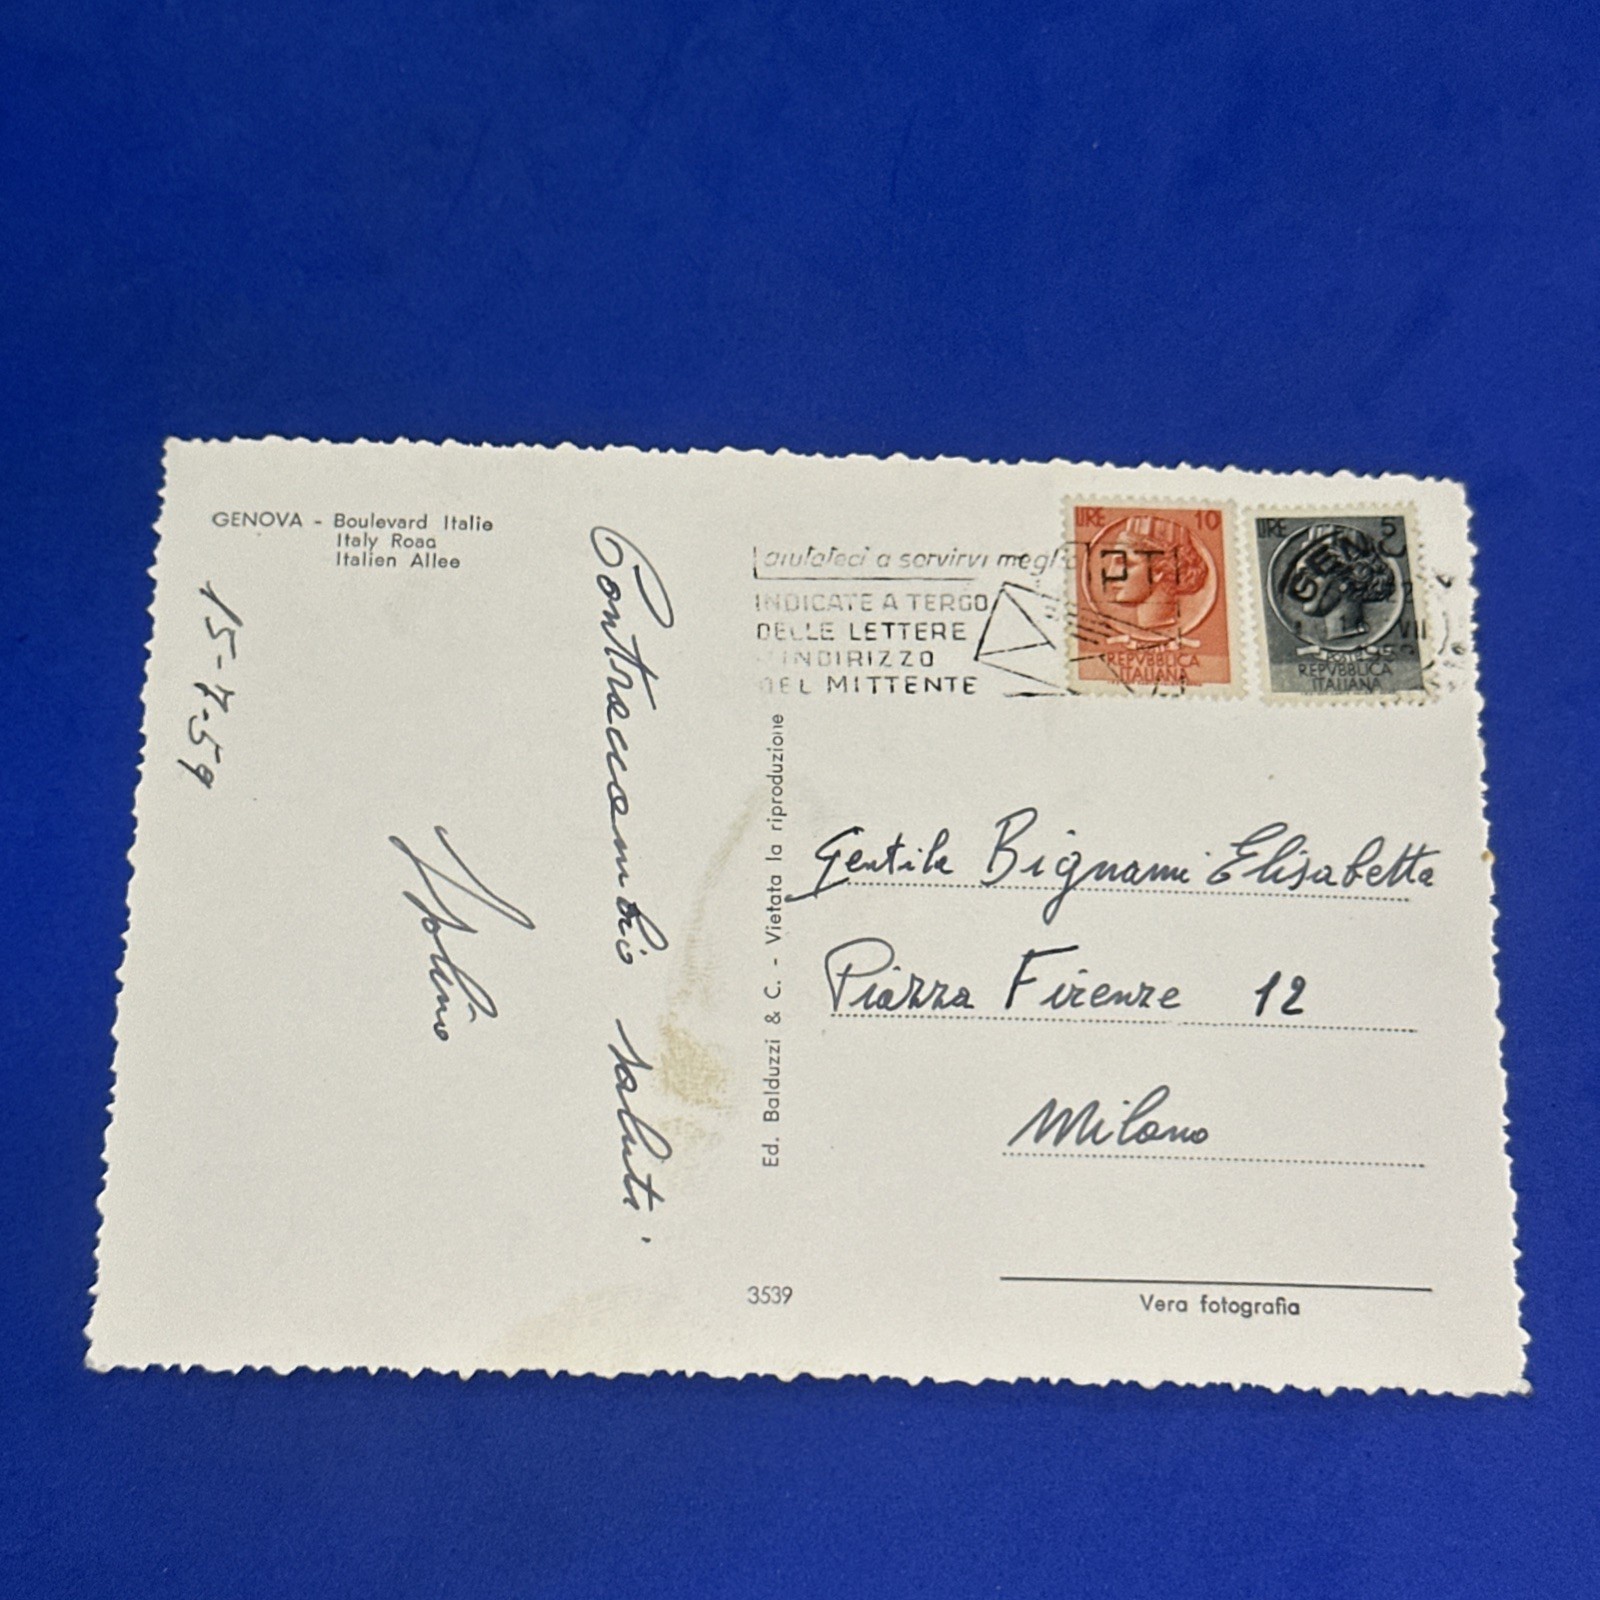 GENOVA - Boulevard Italie
Italy Road
Italien Allee
15-7-59
Contraccambio saluti.
aiutateci a servirvi meglio
INDICATE A TERGO
DELLE LETTERE
INDIRIZZO
DEL MITTENTE
PT
LIRE 10
REPVBBLICA
ITALIANA
LIRE 5
REPVBBLICA
ITALIANA
GENO
VII
Ed. Balduzzi & C. - Vietata la riproduzione
Gentile Bignami Elisabetta
Piazza Firenze 12
Milano
3539
Vera fotografia